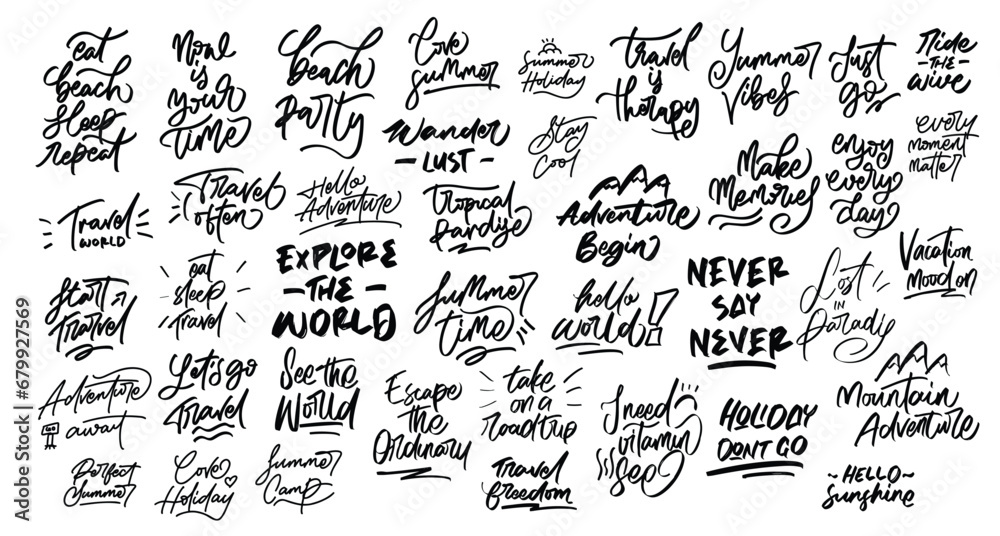 eat
beach
sleep
repeat
Now
is
your
time
beach
party
Love
summer
Summer
Holiday
travel
is
therapy
Summer
Vibes
Just
go
Ride
-THE-
wive
Wander
-LUST-
Stay
Cool
Make
Memories
enjoy
every
day
every
moment
matter
Travel
WORLD
Travel
often
Hello
Adventure
Tropical
Paradise
Adventure
Begin
Vacation
Mood on
Start
Travel
eat
sleep
Travel
EXPLORE
-THE-
WORLD
Summer
time
hello
world!
NEVER
SAY
NEVER
Lost
IN
Parady
Adventure
GO
await
Let's go
Travel
See the
World
Escape
the
Ordinary
take
on a
roadtrip
I need
vitamin
sea
HOLIDAY
DONT GO
Mountain
Adventure
Perfect
Summer
Love
Holiday
Summer
Camp
Travel
freedom
~HELLO~
Sunshine
Adobe Stock | #679927569